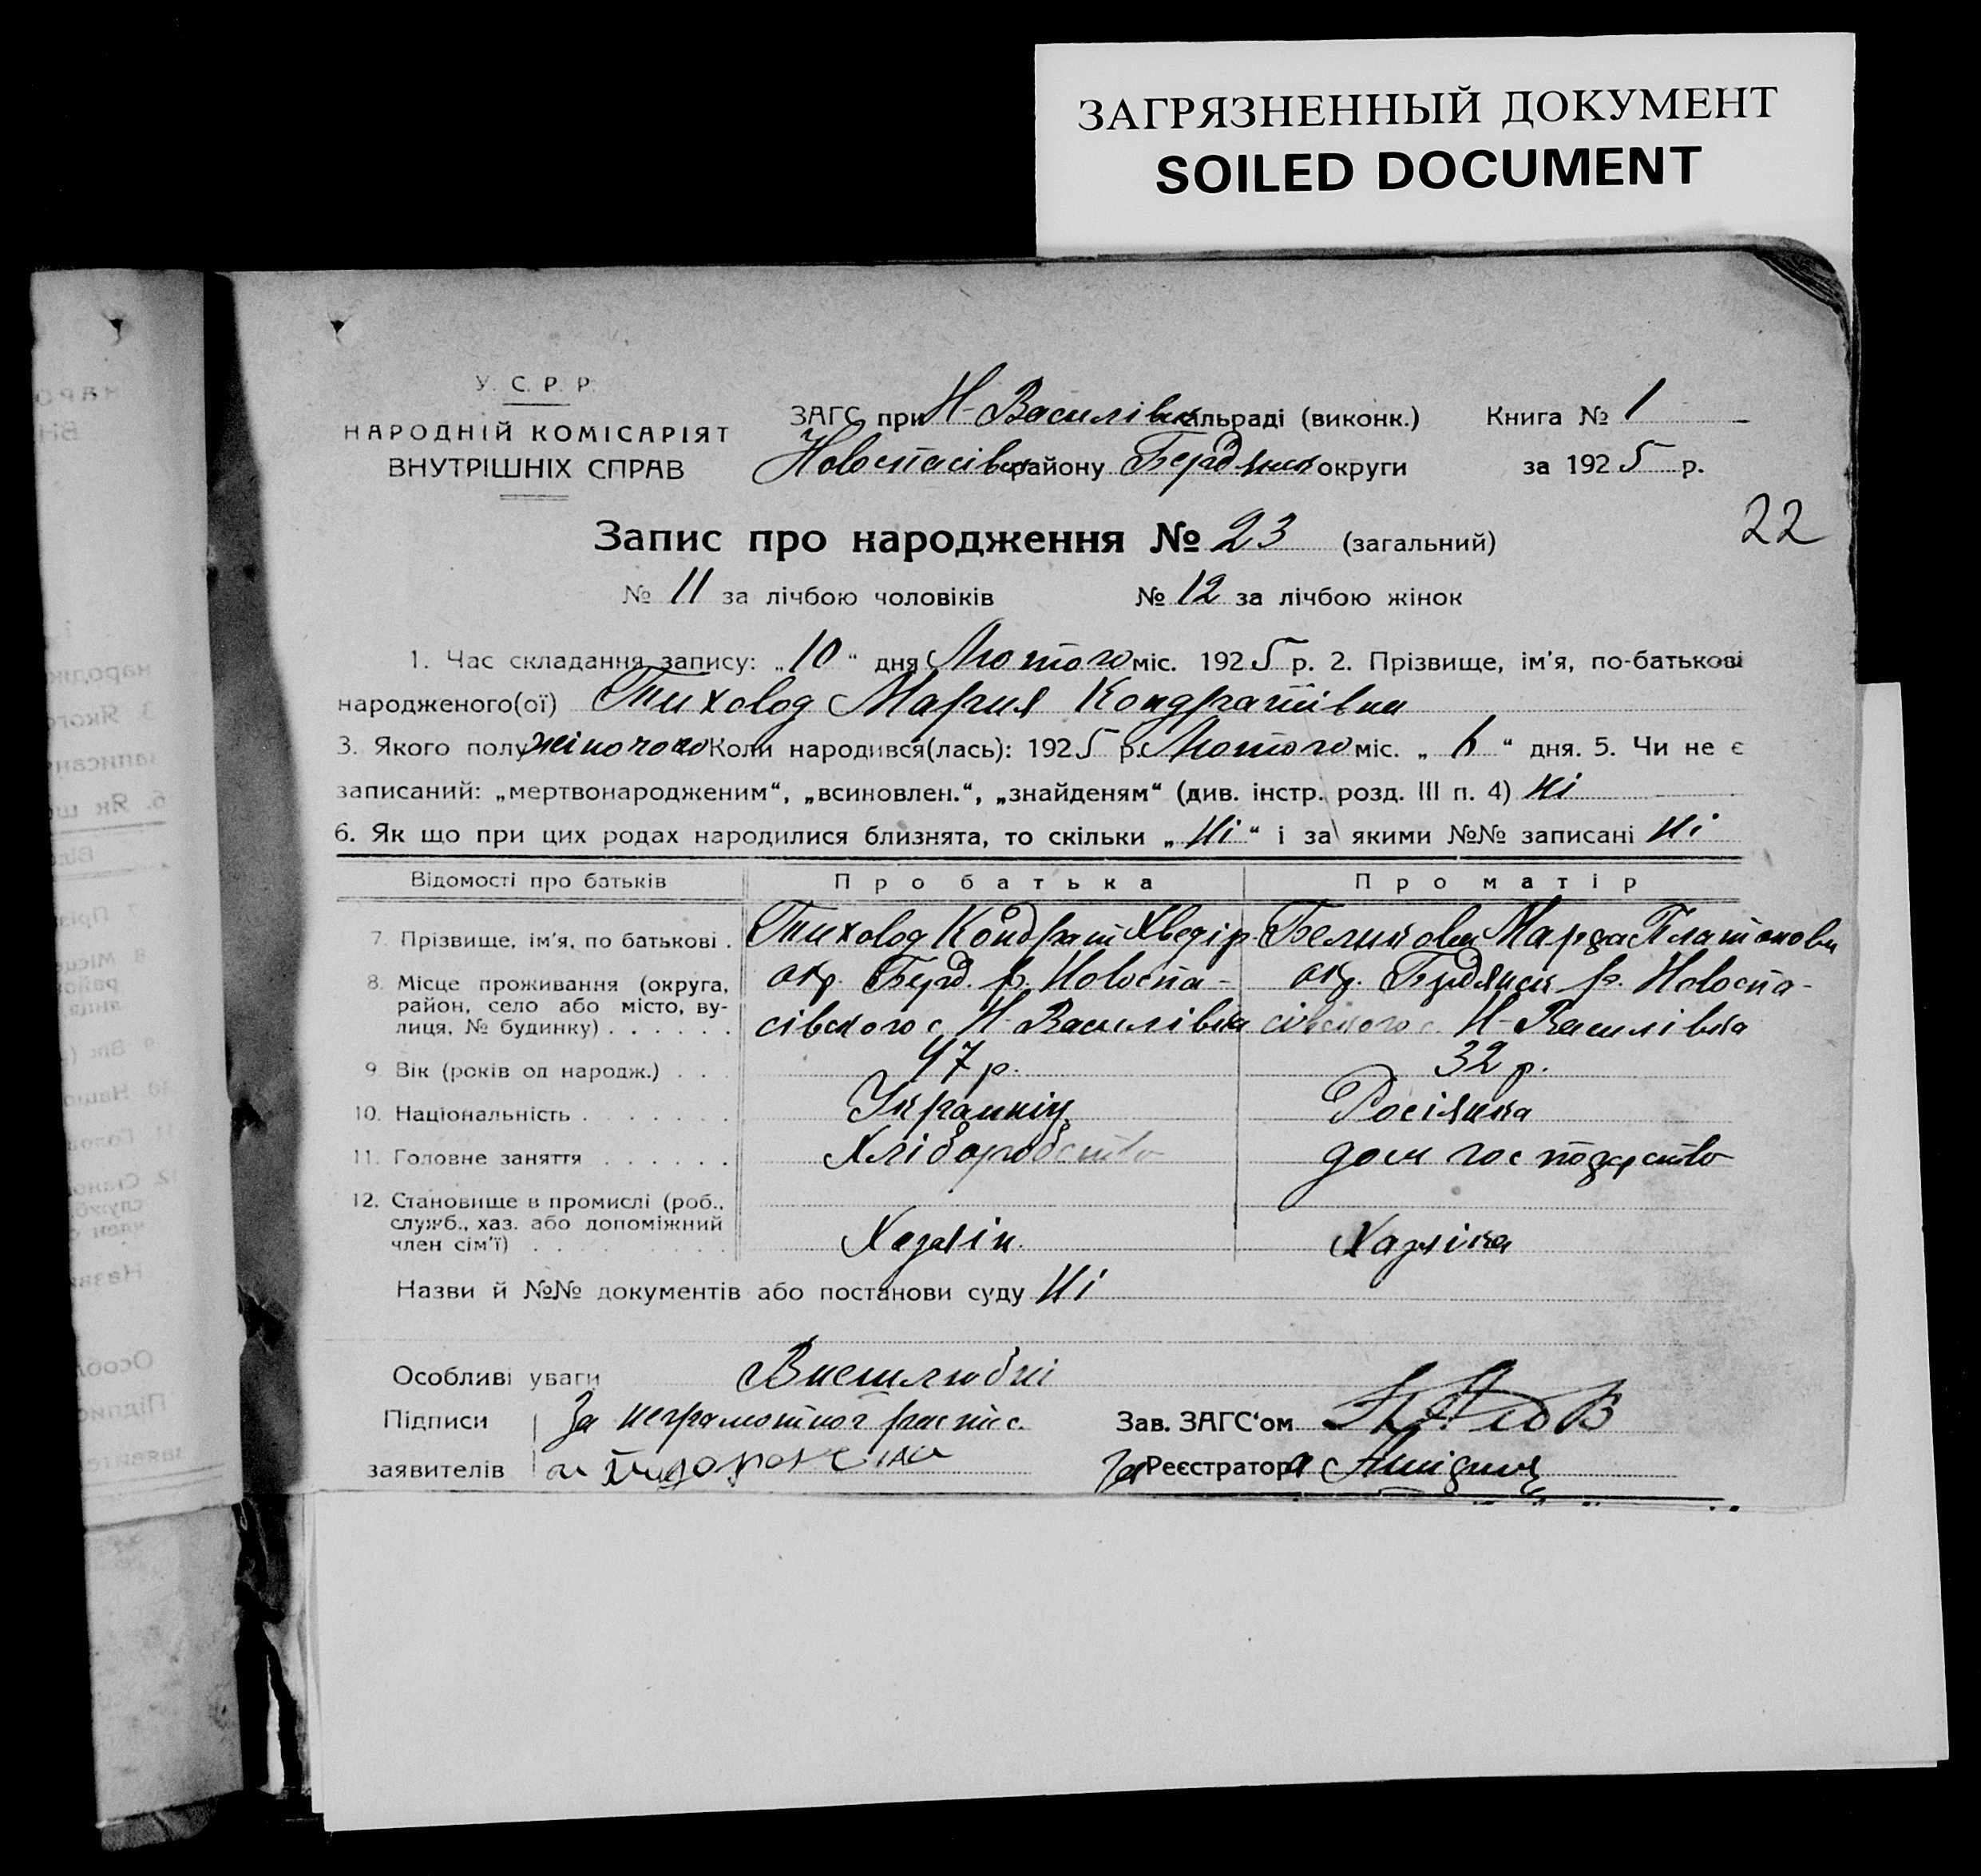 ЗАГРЯЗНЕННЫЙ ДОКУМЕНТ
SOILED DOCUMENT
У. С. Р. Р.
НАРОДНІЙ КОМІСАРІЯТ
ВНУТРІШНІХ СПРАВ
ЗАГС при Н-Василівк сільраді (виконк.) Книга № 1
Новоспасівск району Бердянск округи за 1925 р.
22
Запис про народження № 23 (загальний)
№ 11 за лічбою чоловіків № 12 за лічбою жінок
1. Час складання запису: „10“ дня Лютого міс. 1925 р. 2. Прізвище, ім'я, по-батькові
народженого(ої) Тихолод Мария Кондратівна
3. Якого полу жіночого Коли народився(лась): 1925 р. Лютого міс. „ “ дня. 5. Чи не є
записаний: „мертвонародженим“, „всиновлен.“, „знайденям“ (див. інстр. розд. III п. 4) Ні
6. Як що при цих родах народилися близнята, то скільки „Ні“ і за якими №№ записані Ні
Відомості про батьків Про батька Про матір
7. Прізвище, ім'я, по батькові . Тихолод Кондрат Хведір Беликова Марфа Платоновн
8. Місце проживання (округа, район, село або місто, вулиця, № будинку) . . . . . .
окр. Берд. р. Новоспа- окр. Бердянск р. Новоспа-
сівского с. Н-Василівка сівского с. Н-Василівка
9. Вік (років од народж.) . . . 47 р. 32 р.
10. Національність . . . . . . . Українець Росіянка
11. Головне заняття . . . . . . Хліборобство дом господарство
12. Становище в промислі (роб., служб., хаз. або допоміжний член сім'ї) . . . . . . . .
Хазяін. Хазяіка
Назви й №№ документів або постанови суду Ні
Особливі уваги
Підписи За неграмотног распис. Зав. ЗАГС'ом
заявителів За Реєстратора